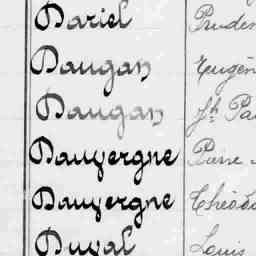 Dariel
Daugan Eugèn
Daugan Jh Pa
Dauvergne Pierre
Dauvergne Théodo
Duval Louis